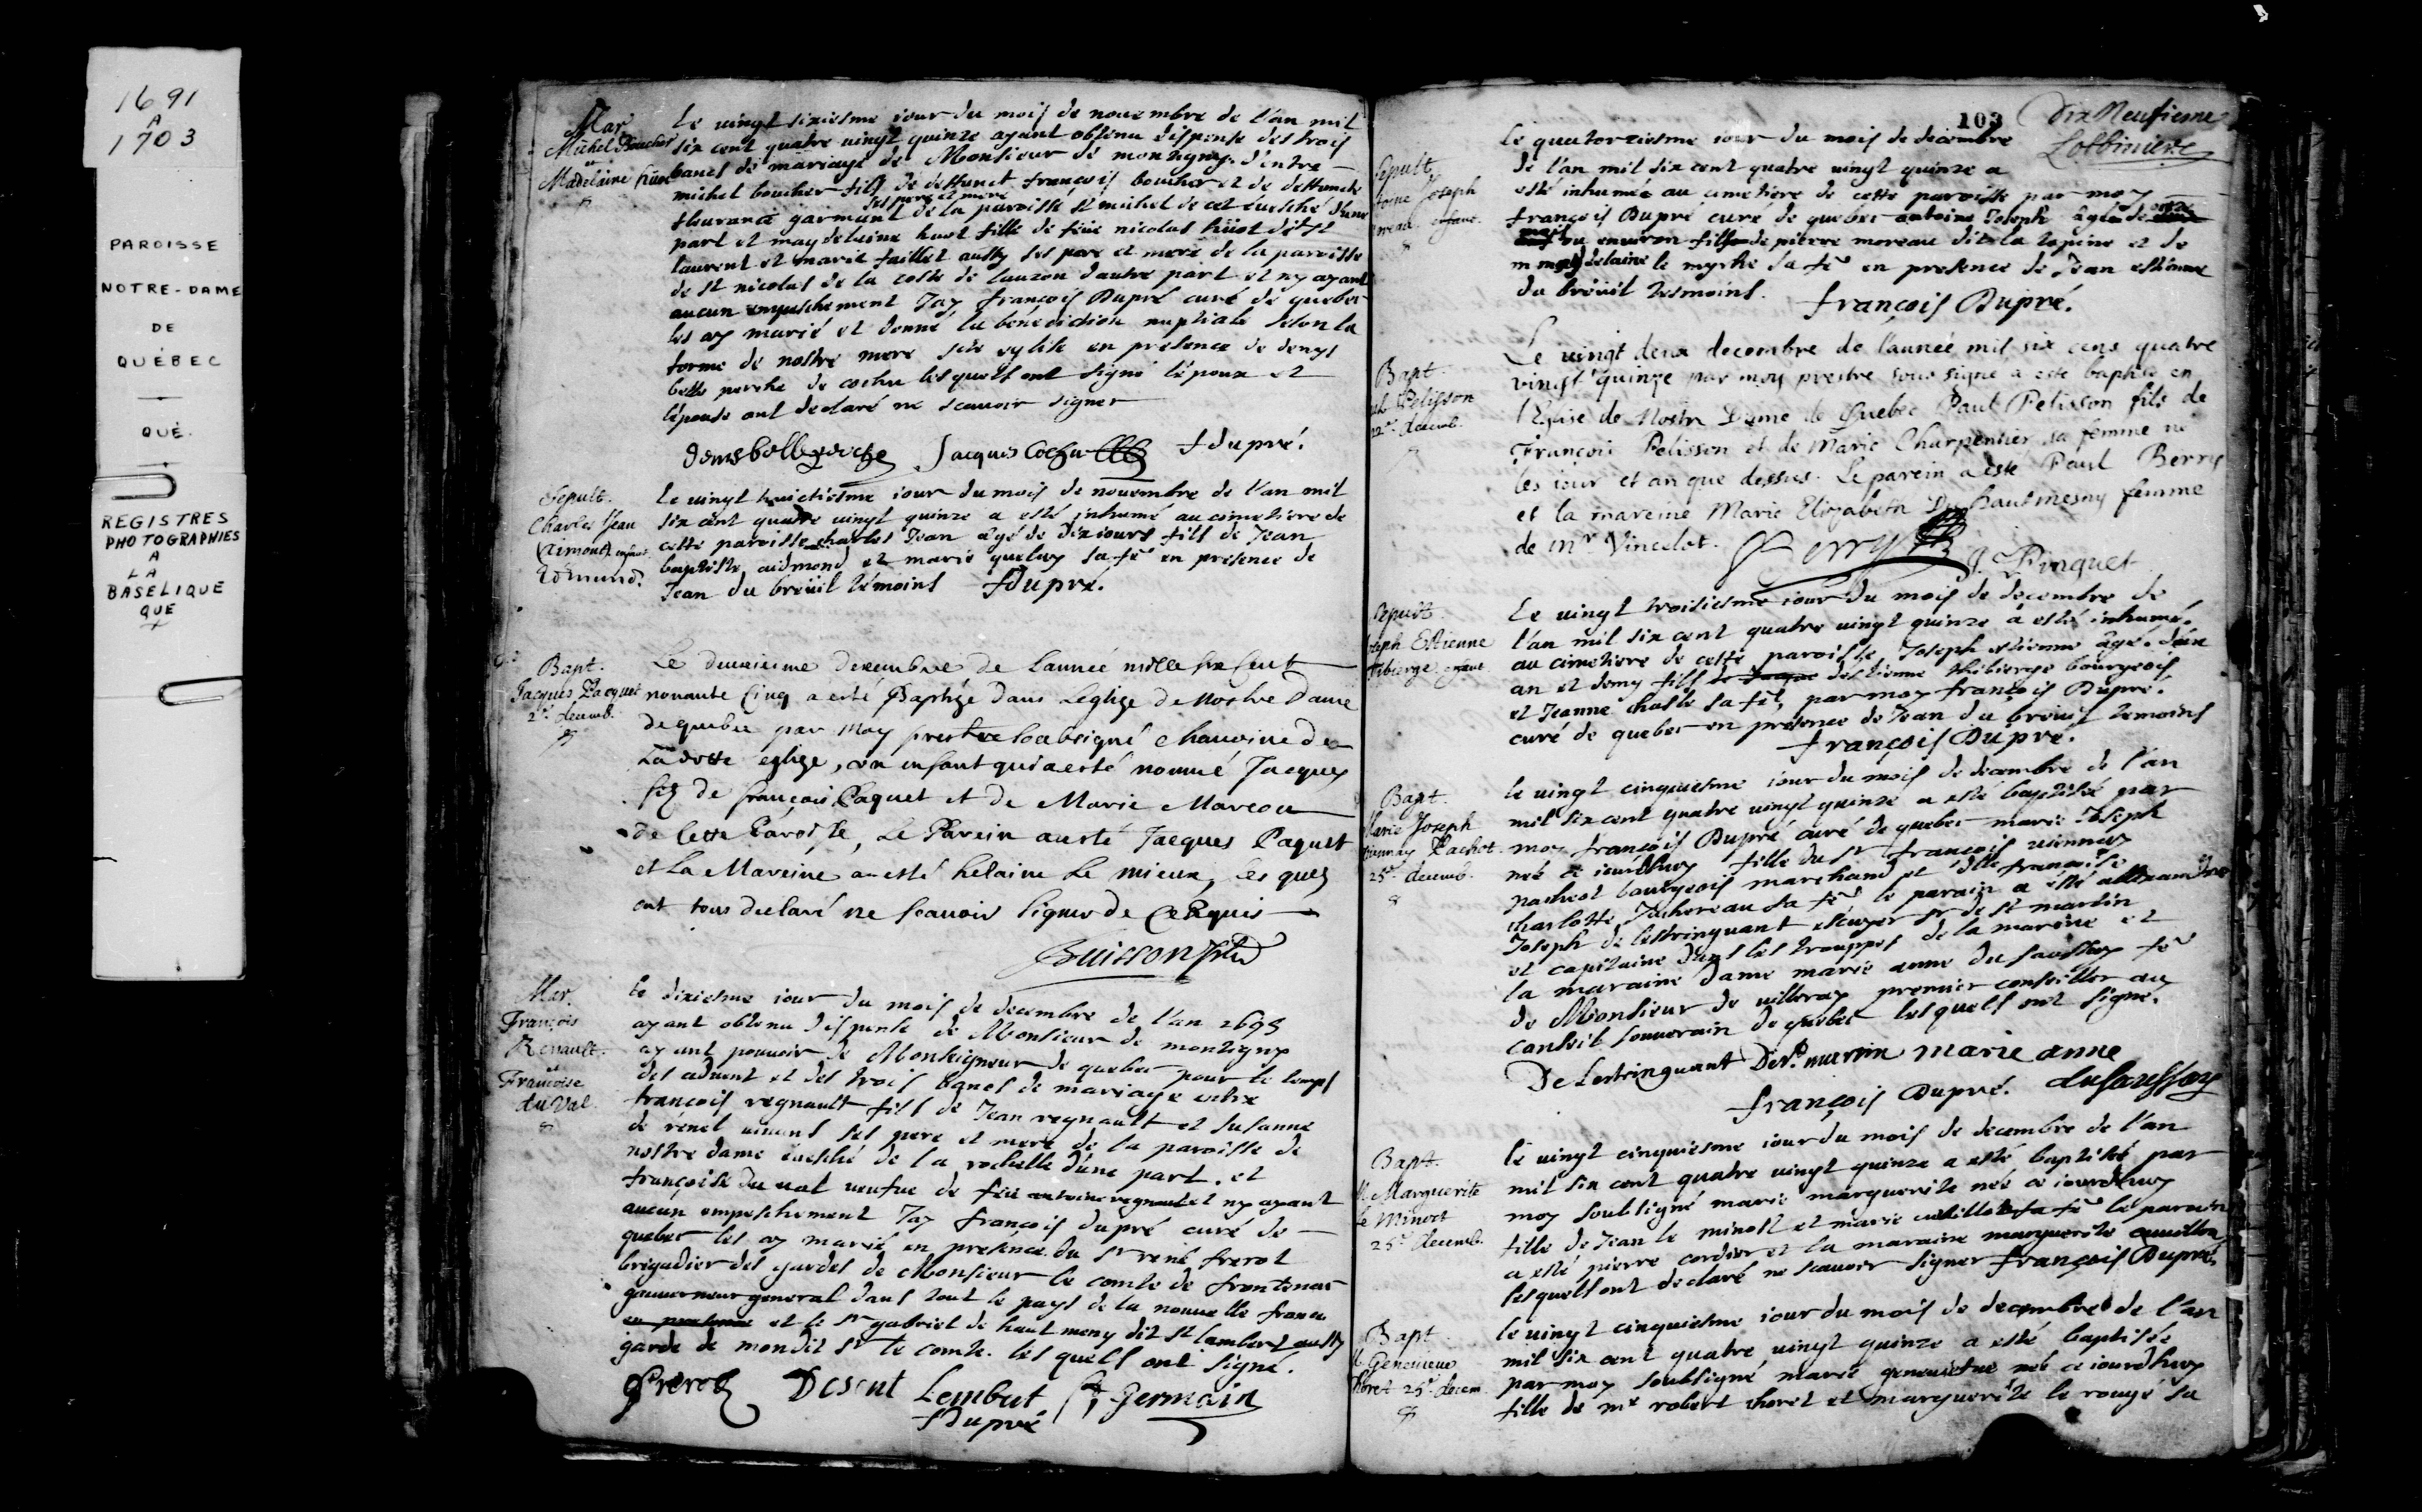 1691
A
1703
PAROISSE
NOTRE-DAME
DE
QUÉBEC
QUÉ.
REGISTRES
PHOTOGRAPHIES
A
LA
BASELIQUE
QUE
Mar.
Michel Boucher
et
Madelaine huot
Le vingt sixiesme iour du mois de nouembre de l'an mil
six cent quatre vingt quinze ayant obtenu dispense des trois
bancs de mariage de Monsieur de montigny d'entre
michel boucher fils de deffunct francois boucher et de deffuncte
ses pere et mere
flourance garmant de la paroisse st michel de cet euesché d'une
part et magdelaine huot fille de feüe nicolas hüot dit st
laurent et marie faillet aussy ses pere et mere de la paroisse
de st nicolas de la coste de lauzon dautre part et ny ayant
aucun empeschement Jay françois Dupré curé de quebec
les ay marié et donné la bénédiction nuptiale selon la
forme de nostre mere ste eglise en presence de denys
belle perche de cochu lesquels ont signé l'époux et
l'épouse ont declaré ne scauoir signer
denis belleperche Jacques Cochu f dupré.
Sepult.
Charles Jean
enfant
Edmund.
Le vingt huictiesme iour du mois de nouembre de l'an mil
six cent quatre vingt quinze a esté inhumé au cimetiere de
cette paroisse charles Jean âgé de dix iours fils de Jean
baptiste aidmond et marie queluy sa fe en presence de
Jean du breüil témoins fDupré.
Bapt.
Jacques Pacquet
2e decemb.
Le deuxieme decembre de lannée mille six Cent
nonante Cinq a esté Baptizé dans Leglize de Nostre Dame
de quebec par Moy prestre soubsigné chanoine de
La ditte eglize, un enfant qui a esté nommé Jacques
filz de françois Paquet et de Marie Marcou
de Cette Paroisse, Le Parein a esté Jacques Paquet
et La Mareine a esté helaine Le mieux, Lesquels
ont tous declaré ne scauoir signer de Ce Requis
Buisson
Mar.
François
Renault.
et
Françoise
du Val.
Le dixiesme iour du mois de decembre de l'an 1695
ayant obtenu dispense de Monsieur de montigny
ayant pouuoir de Monseigneur de quebec pour le temps
des aduent et des trois bancs de mariage entre
françois regnault fils de Jean regnault et susanne
de rénel uiuans ses pere et mere de la paroisse de
nostre dame euesché de la rochelle d'une part. et
françoise du ual ueufue de feu antoine regnault et ny ayant
aucun empeschement Jay françois dupré curé de
quebec les ay marié en presence du sr rené frerot
brigadier des gardes de Monsieur le comte de frontenac
gouuerneur general dans tout le pays de la nouuelle france
en presence et le sr gabriel de haut meny dit st lambert aussy
garde de mondit sr le comte. lesquels ont signé.
frerot Desent Lembert St Germain
fDupré
103 Dix Neufiesme
Lotbiniere
Sepult.
Joseph
enfant.
Le quatorziesme iour du mois de decembre
de l'an mil six cent quatre vingt quinze a
esté inhumée au cimetiere de cette paroisse par moy
françois Dupré curé de quebec antoine Joseph âgé de onze
mois ou enuiron fils de pierre moreau dit la topine et de
m magdelaine le myrhe sa fe en presence de Jean estienne
du breüil tesmoins. françois Dupré.
Bapt.
Pelisson
22e decemb.
Le vingt deux decembre de l'année mil six cens quatre
vingt quinze par moy prestre sous signé a esté baptisé en
l'Eglise de Nostre Dame de Quebec Paul Pelisson fils de
François Pelisson et de Marie Charpentier sa femme né
les iour et an que dessus. Le parein a esté Paul Berry
et la mareine Marie Elizabeth Du hautmesny femme
de Mr Vincelot. Berry J. Pinguet
Sepult.
Joseph Estienne
Thibierge enfant
Le vingt troisiesme iour du mois de decembre de
l'an mil six cent quatre vingt quinze a esté inhumé
au cimetiere de cette paroisse Joseph estienne âgé d'un
an et demy fils destienne thibierge bourgeois
et Jeanne chasle sa fe, par moy françois Dupré.
curé de quebec en presence de Jean du breuil temoins
françois Dupré.
Bapt.
Marie Joseph
Viennay Pachot.
25e decemb.
le vingt cinquiesme iour du mois de decembre de l'an
mil six cent quatre vingt quinze a esté baptisée par
moy françois Dupré curé de quebec marie Joseph
née ce iourdhuy fille du sr françois uiennay
pacheot bourgeois marchand et dlle françoise
charlotte Juchereau sa fe le parain a esté allexandre
Joseph de lestringuant escuyer sr de st martin
et capitaine dans les trouppes de la marine et
la maraine dame marie anne du saussay fe
de Monsieur de uilleray premier conseiller au
conseil souuerain de quebec lesquels ont signé.
De Lestringuant De St. martin marie anne
françois Dupré. dusaussay
Bapt.
M Marguerite
le Minoet
25e decemb.
le vingt cinquiesme iour du mois de decembre de l'an
mil six cent quatre vingt quinze a esté baptisée par
moy soubsigné marie marguerite née ce iourdhuy
fille de Jean le minost et marie sa fe le parain
a esté pierre cordier et la maraine marguerite
lesquels ont declaré ne scauoir signer françois Dupré.
Bapt.
M Geneuieue
Choret 25e decem.
le vingt cinquiesme iour du mois de decembre de l'an
mil six cent quatre vingt quinze a esté baptisée
par moy soubsigné marie geneuiefue née ce iourdhuy
fille de mr robert choret et marguerite le rougé sa